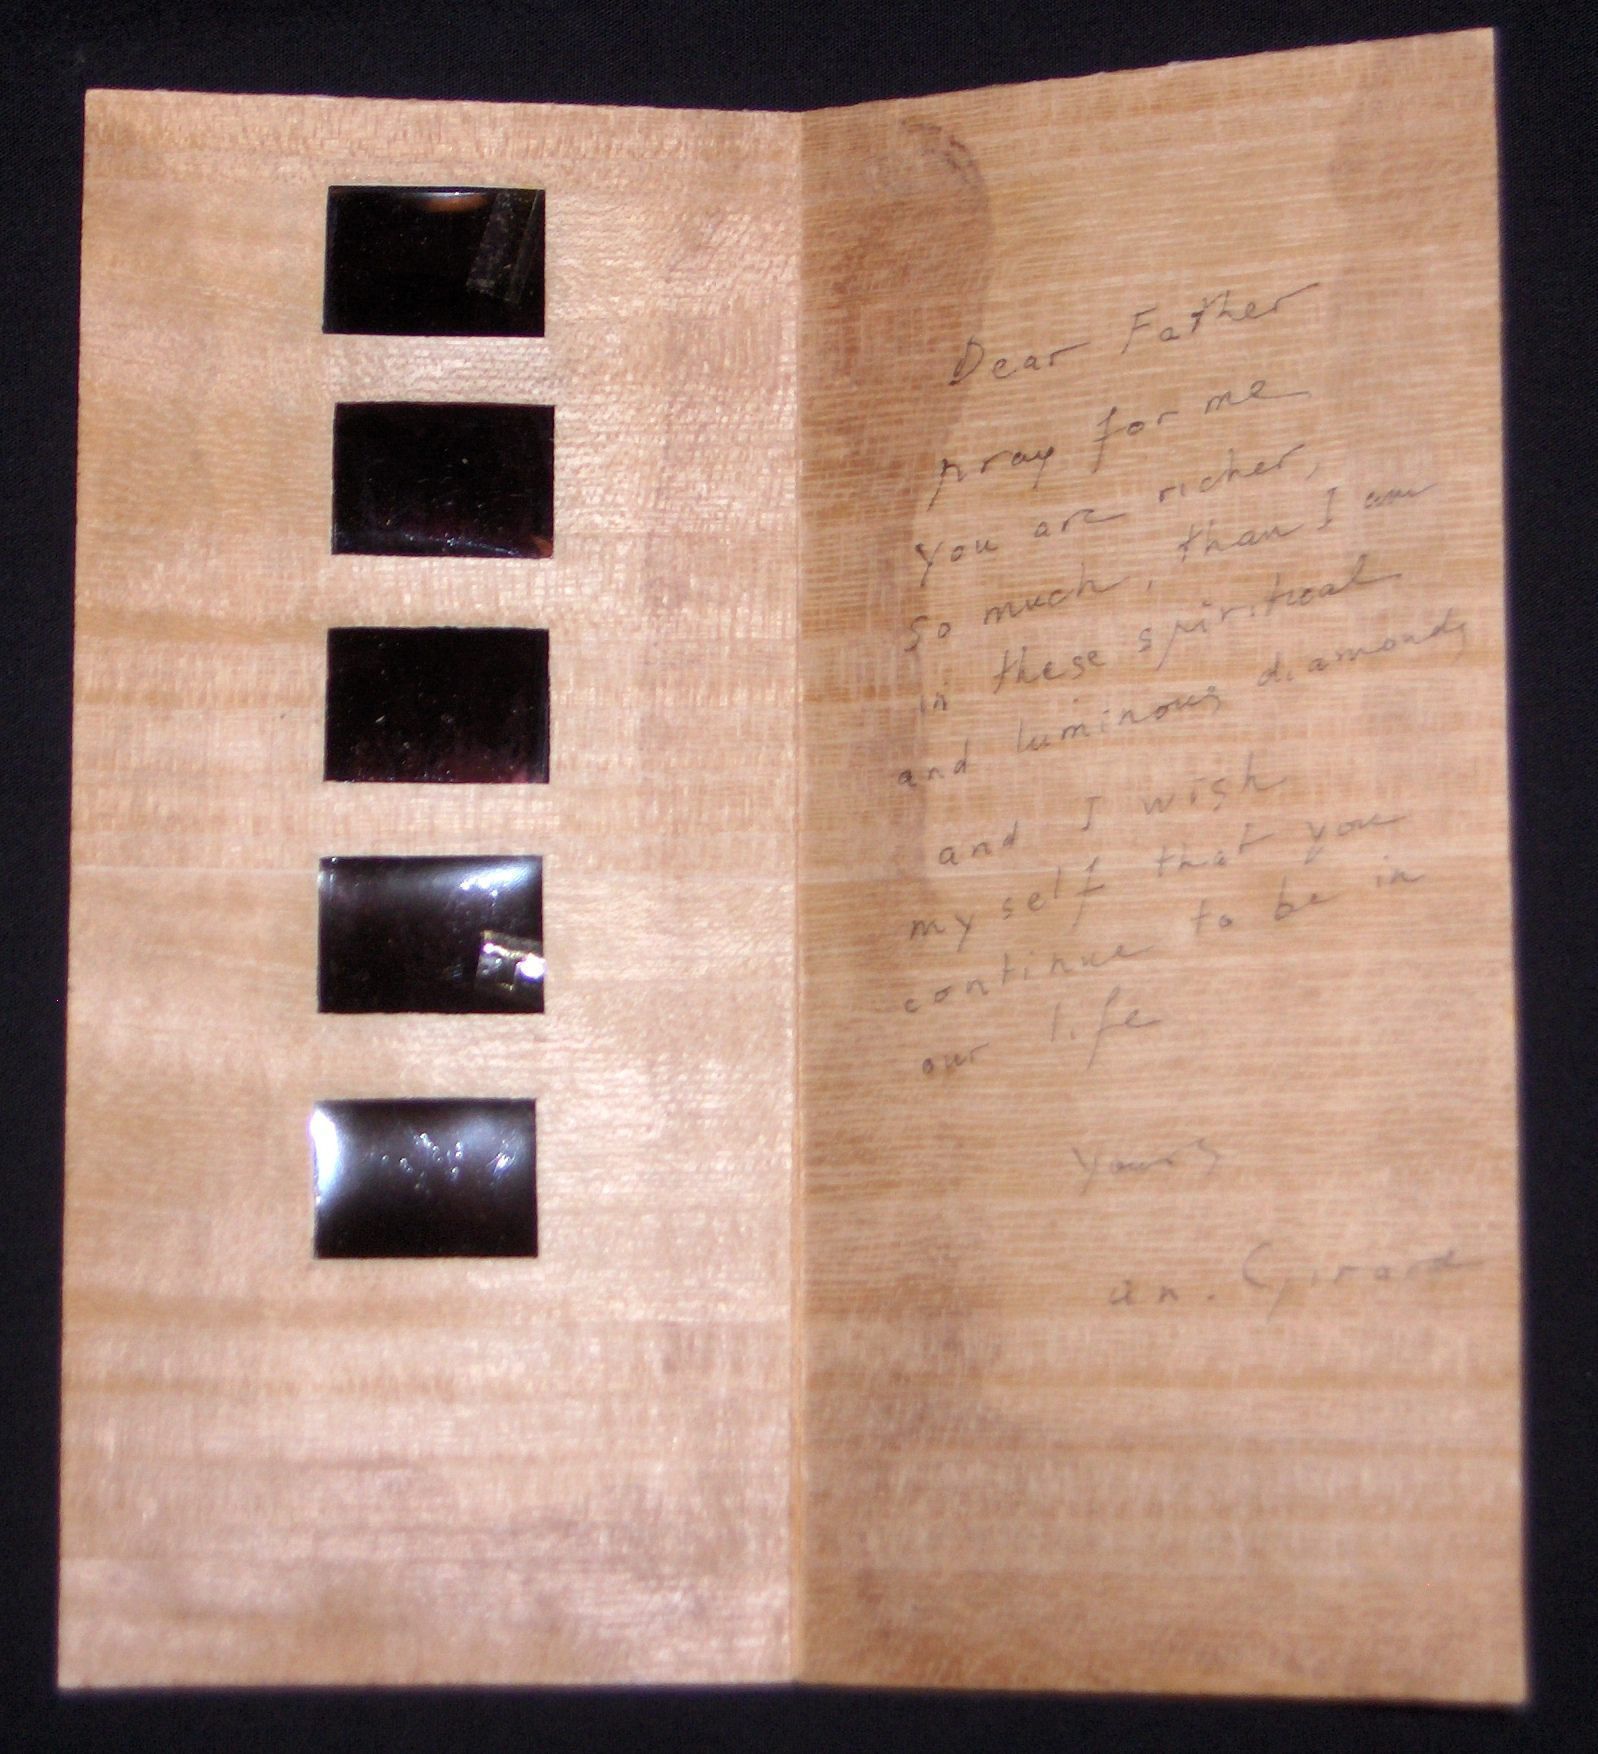 Dear Father
pray for me
You are richer,
so much, than I am
in these spiritual
and luminous diamonds
and I wish
my self that you
continue to be in
our life
Yours
an. Girard